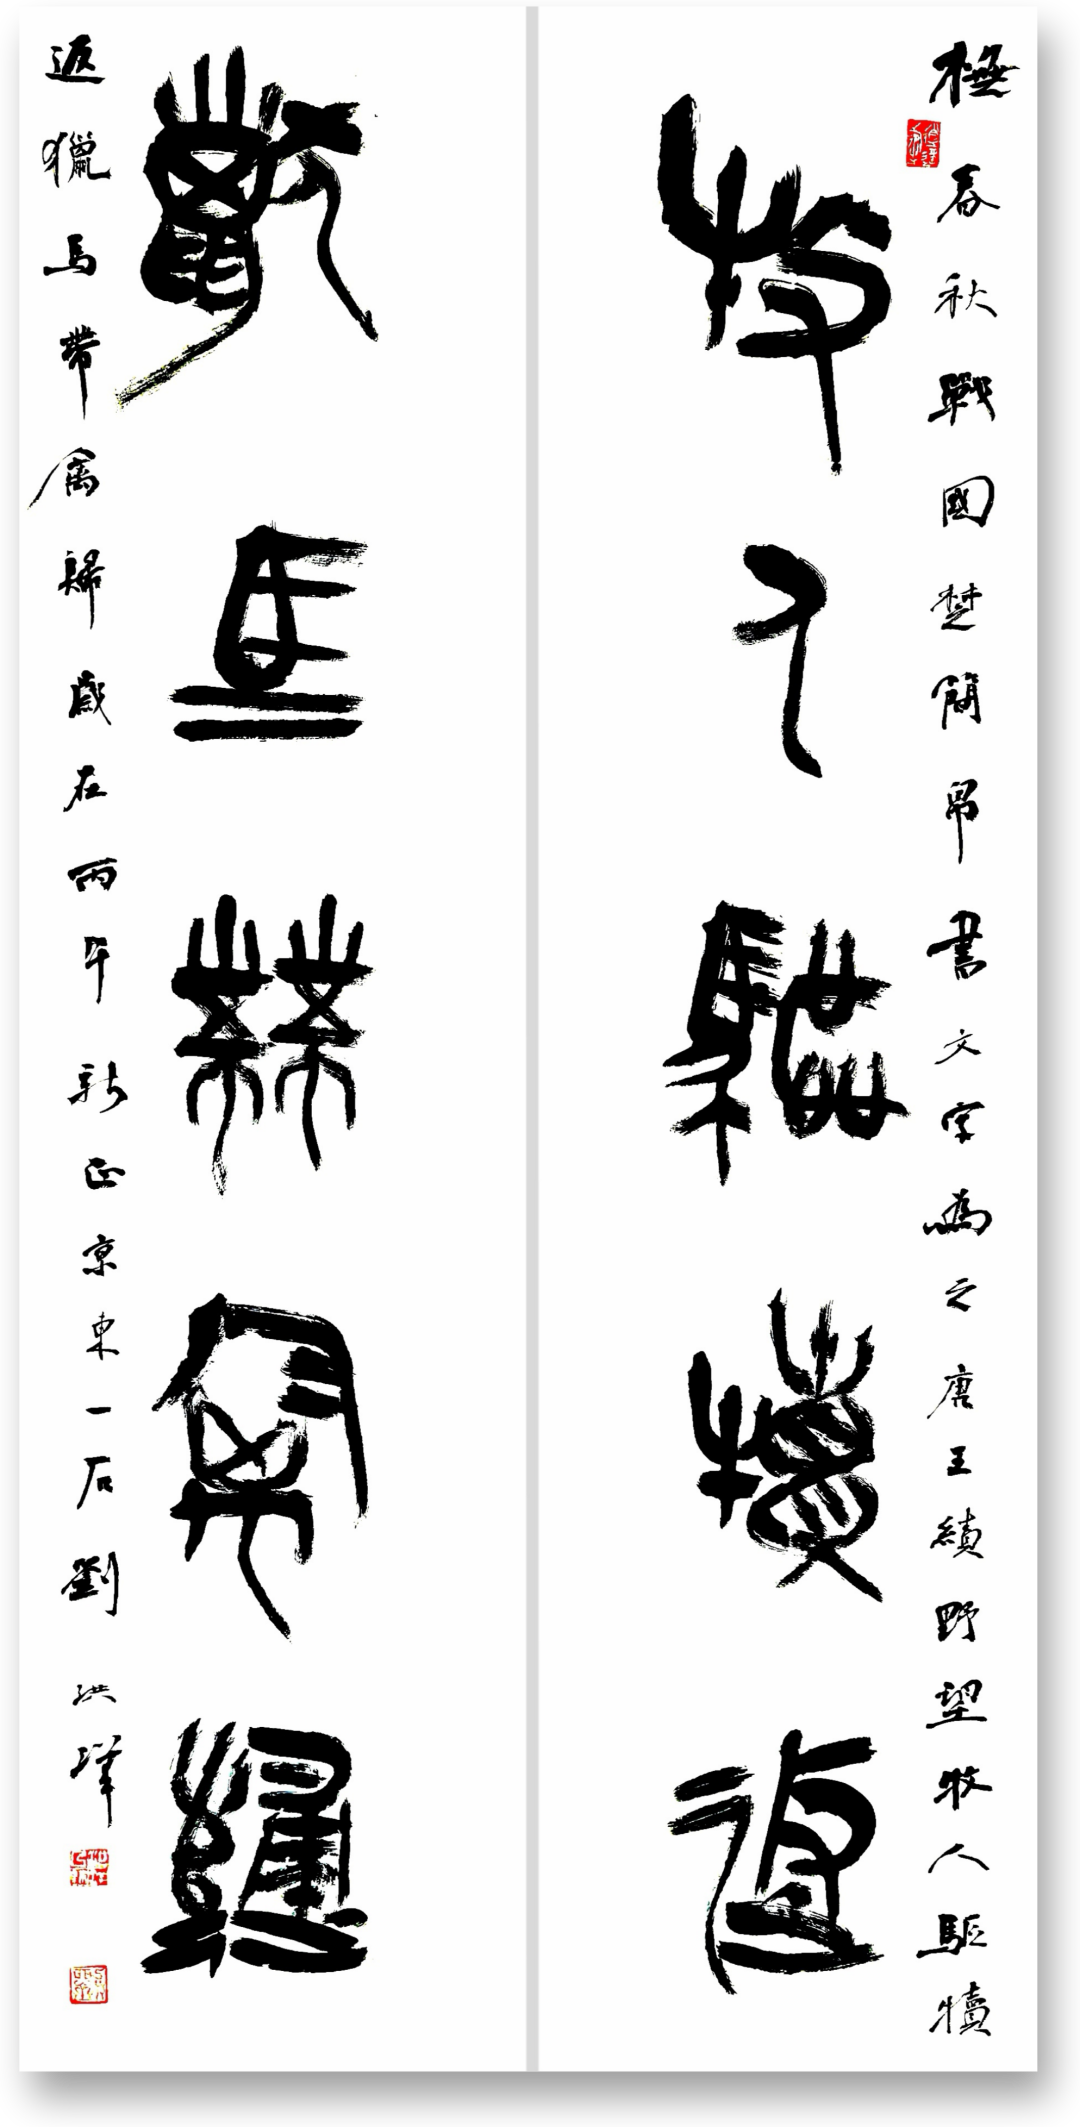 橅春秋戰國楚簡帛書文字為之唐王績野望牧人驅犢
牧人驅犢返
獵馬帶禽歸
返獵馬帶禽歸歲在丙午新正京東一石劉洪